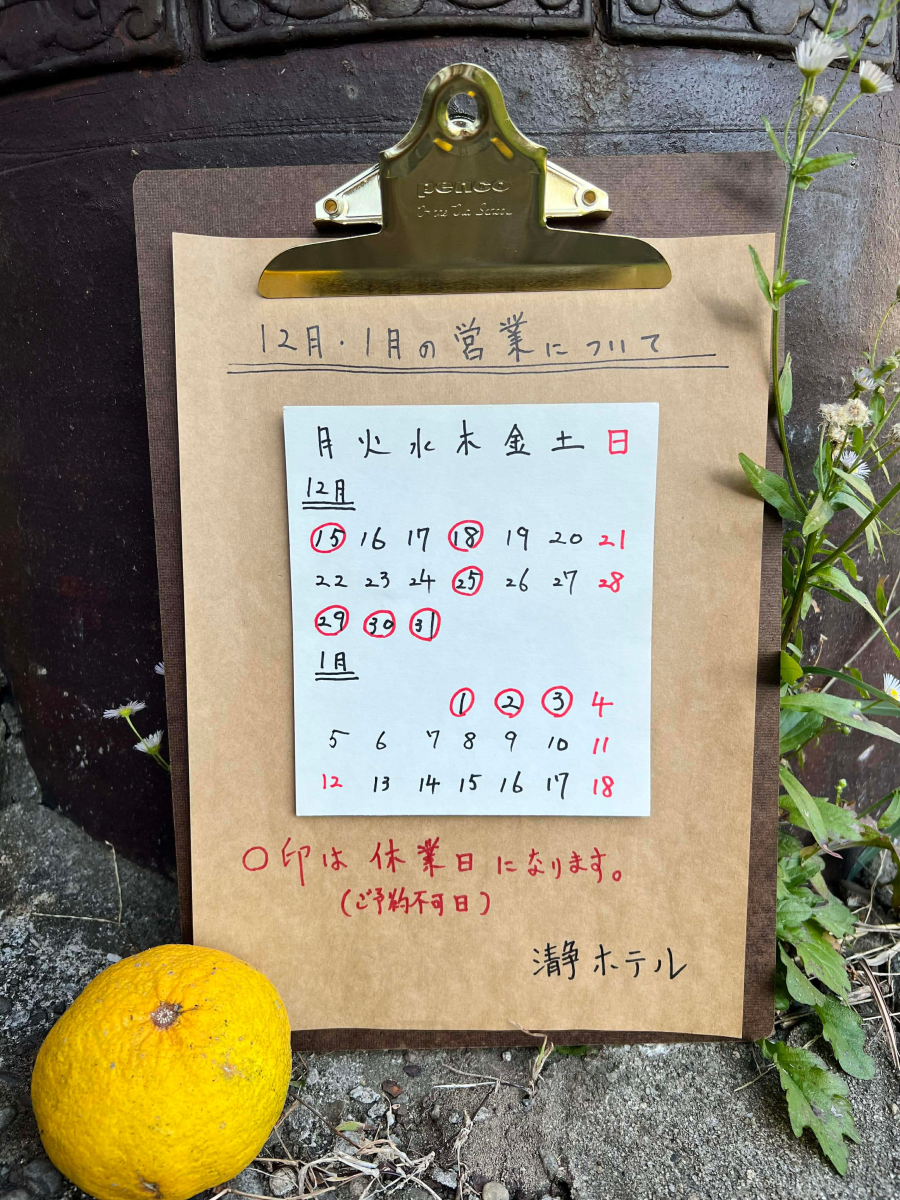 penco
12月・1月の営業について
月 火 水 木 金 土 日
12月
15 16 17 18 19 20 21
22 23 24 25 26 27 28
29 30 31
1月
1 2 3 4
5 6 7 8 9 10 11
12 13 14 15 16 17 18
○印は休業日になります。
(ご予約不可日)
清静ホテル